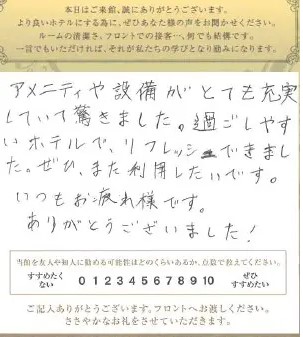 本日はご来館、誠にありがとうございます。
より良いホテルにする為に、ぜひあなた様の声をお聞かせください。
ルームの清潔さ、フロントでの接客…、何でも結構です。
一言でもいただければ、それが私たちの学びとなり励みになります。
アメニティや設備がとても充実
していて驚きました。過ごしやす
いホテルで、リフレッシュできまし
た。ぜひ、また利用したいです。
いつもお疲れ様です。
ありがとうございました!
当館を友人や知人に勧める可能性はどのくらいあるか、点数で教えてください。
すすめたく
ない
0 1 2 3 4 5 6 7 8 9 10
ぜひ
すすめたい
ご記入ありがとうございます。フロントへお渡しください。
ささやかなお礼をさせていただきます。